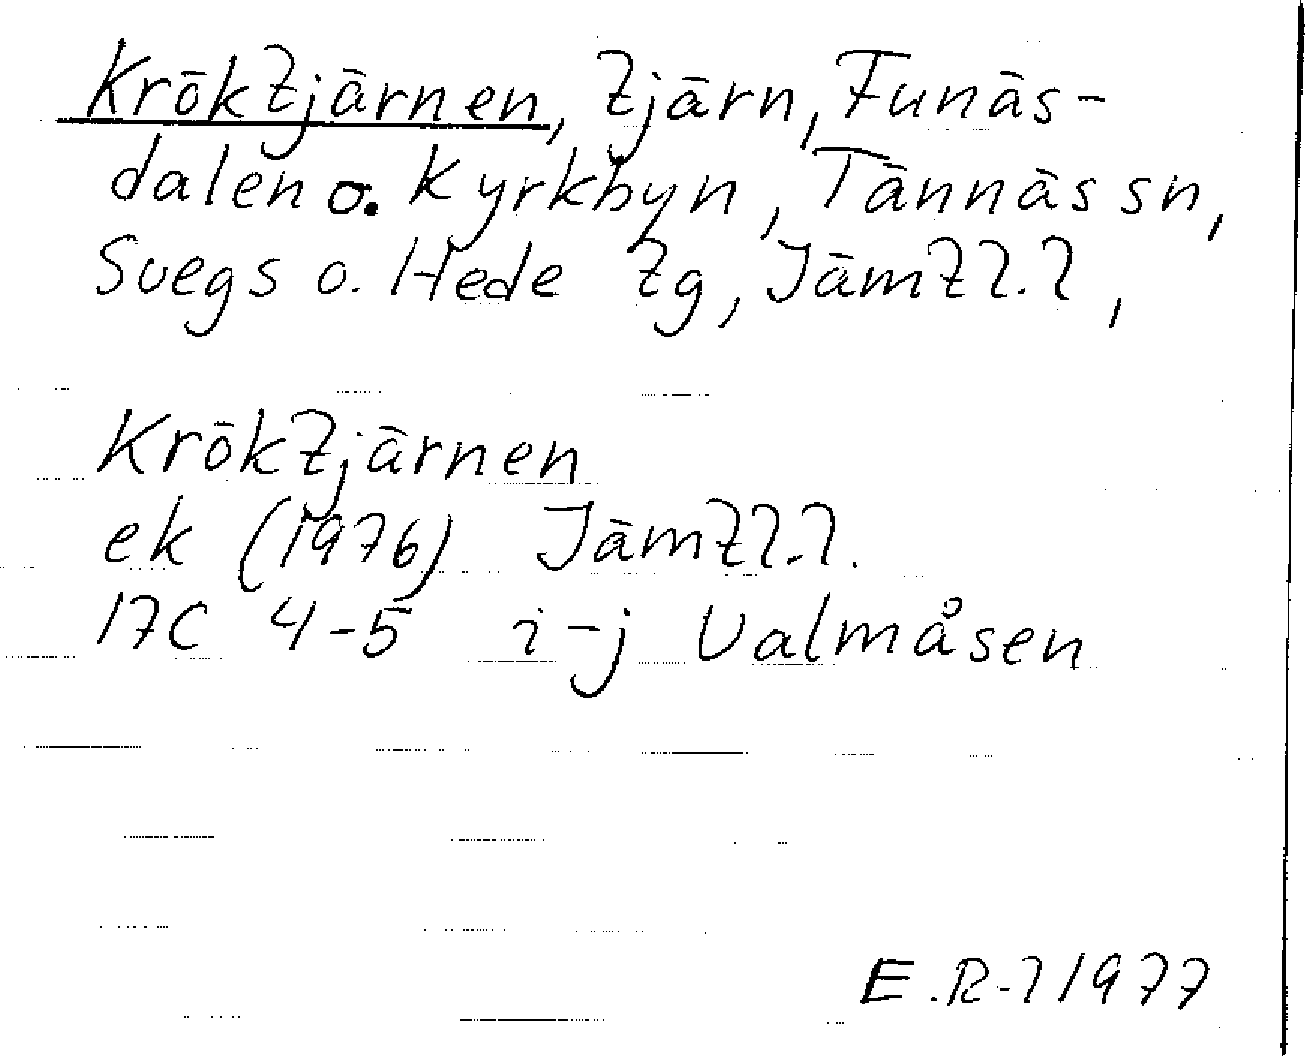 Kröktjärnen, tjärn, Funäs-
dalen o. Kyrkbyn, Tännäs sn,
Svegs o. Hede tg, Jämtl.l,
Kröktjärnen
ek (1976) Jämtl.l.
17C 4-5 i-j Valmåsen
E.R-l 1977